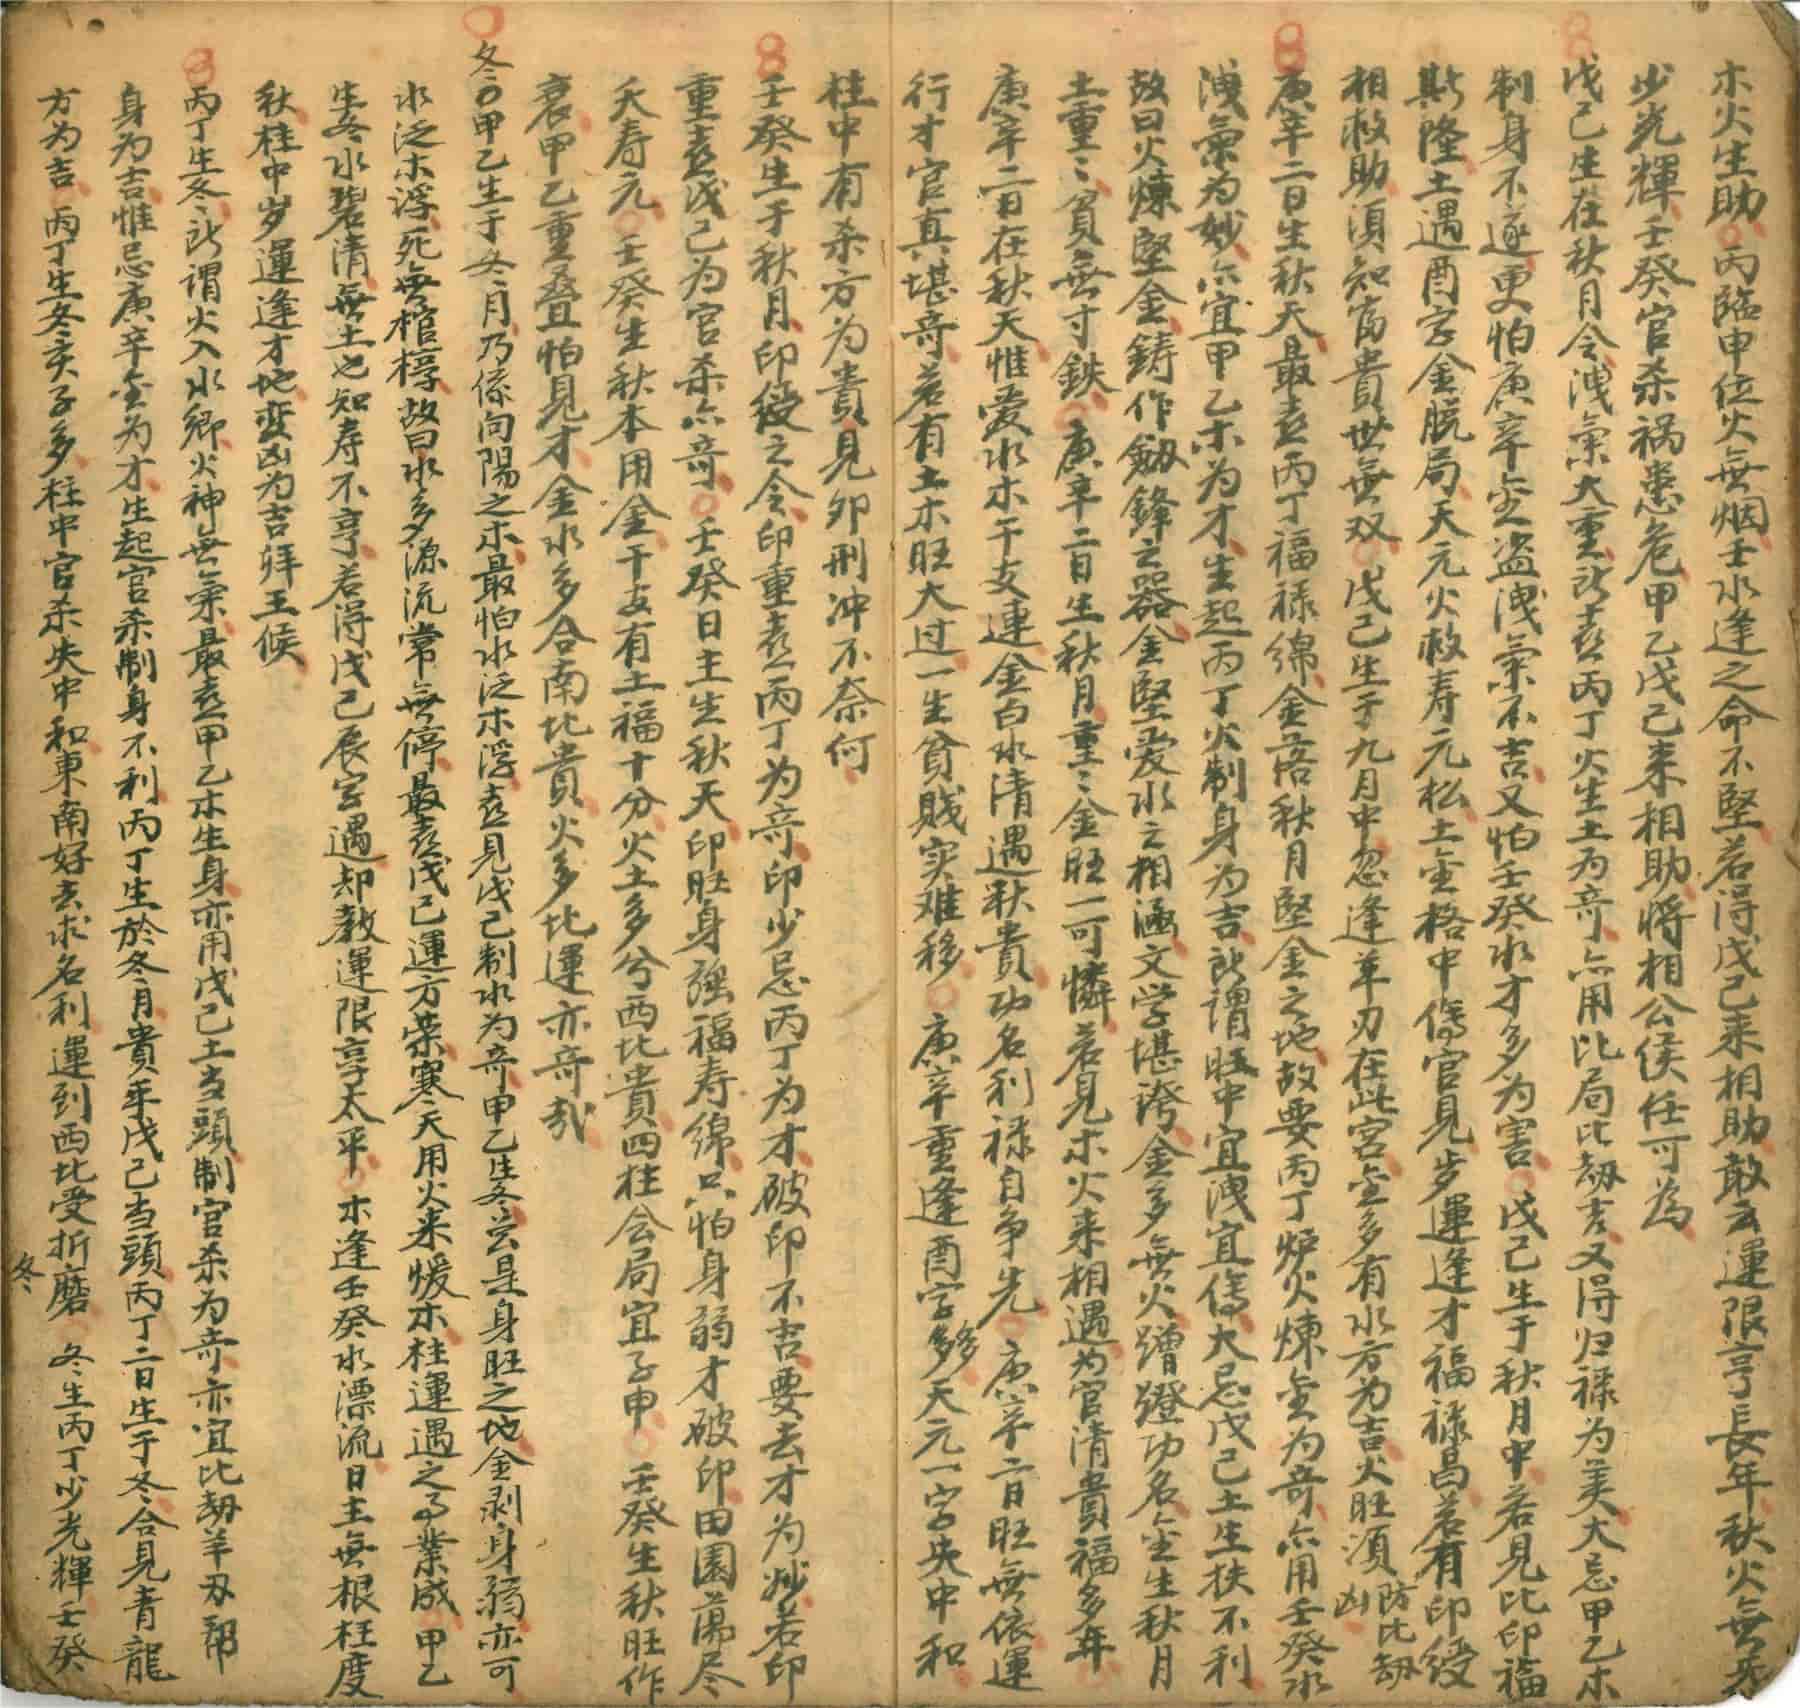 木火生助丙臨申位火無烟壬水逢之命不堅若得戊己来相助敢云運限亨長年秋火無炎
少光輝壬癸官杀祸患危甲乙戊己来相助将相公侯任可為
戊己生在秋月令洩氣太重所喜丙丁火生土为奇亦用比局比刼吉又得归禄为美大忌甲乙木
制身不遂更怕庚辛金盗洩氣不吉又怕壬癸水才多为害戊己生于秋月中若見比印福
斯隆土遇酉字金脱局天元火救寿元松土金格中傷官見步運逢才福禄昌若有印綬
相救助須知富貴世無双戊己生于九月中忽逢羊刃在此宮金多有水方为吉火旺須防比刼凶
庚辛二日生秋天最喜丙丁福禄绵金落秋月堅金之地故要丙丁炉火煉金为奇亦用壬癸水
洩氣为妙亦宜甲乙木为才生起丙丁火制身为吉所謂旺中宜洩宜傷大忌戊己土生扶不利
故曰火煉堅金鋳作劔鋒之器金堅爱水之相涵文学堪誇金多無火蹭蹬功名金生秋月
土重〻貧無寸鉄庚辛二日生秋月重〻金旺一可憐若見木火来相遇为官清貴福多年
庚辛二日在秋天惟爱水木干支連金白水清遇秋貴功名利禄自争先庚辛二日旺無依運
行才官真堪奇若有土木旺大过一生貧賎实难移庚辛重逢酉字多天元一字失中和
柱中有杀方为貴見卯刑冲不奈何
壬癸生于秋月印綬之令印重喜丙丁为奇印少忌丙丁为才破印不吉要去才为妙若印
重喜戊己为官杀亦奇壬癸日主生秋天印旺身强福寿绵只怕身弱才破印田園荡尽
夭寿元壬癸生秋本用金干支有土福十分火土多兮西北貴四柱会局宜子申壬癸生秋旺作
衰甲乙重叠且怕見才金水多合南北貴火多北運亦奇哉
冬甲乙生于冬月乃係向陽之木最怕水泛木浮喜見戊己制水为奇甲乙生冬共是身旺之地金剥身弱亦可
水泛木浮死無棺椁故曰水多源流常無停最喜戊己運方荣寒天用火来煖木柱運遇之事業成甲乙
生冬水碧清無土也知寿不亨若得戊己辰字遇却教運限享太平木逢壬癸水漂流日主無根枉度
秋柱中岁運逢才地变凶为吉拜王候
丙丁生冬所謂火入水鄉火神無氣最喜甲乙木生身亦用戊己土当頭制官杀为奇亦宜比刼羊刃帮
身为吉惟忌庚辛金为才生起官杀制身不利丙丁生於冬月貴乎戊己当頭丙丁二日生于冬合見青龍
方为吉丙丁生冬亥子多柱中官杀失中和東南好去求名利運到西北受折磨冬生丙丁少光輝壬癸
冬